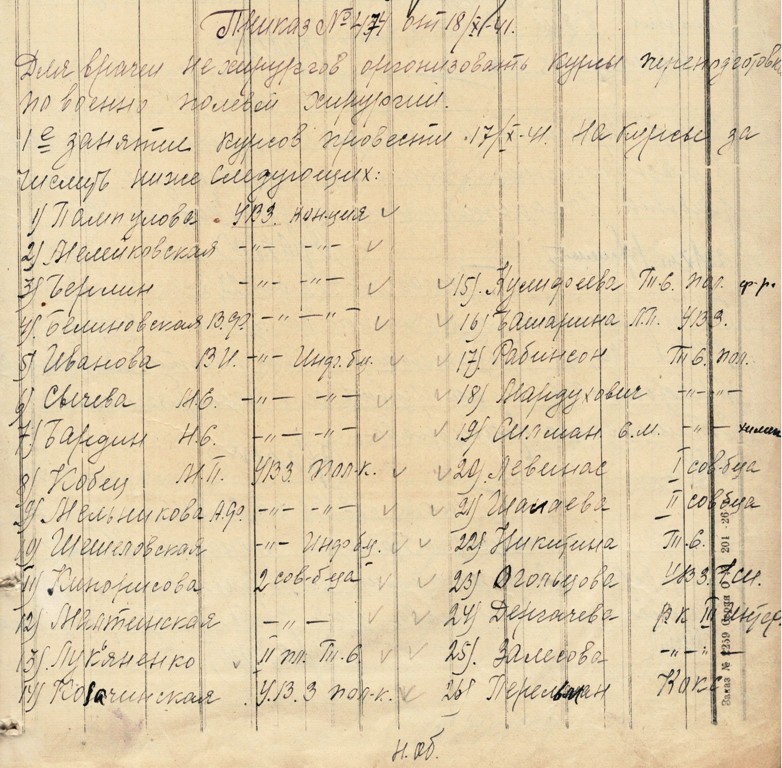 Приказ № 474 от 18/XI-41.
Для врачей не хирургов организовать курсы переподготовки
по военно полевой хирургии.
1е занятие курсов провести 17/X-41. На курсы за
числить ниже следующих:
1) Пампулова УВЗ
2) Мелейковская -"- -"-
3) Берлин -"- -"-
4) Белиновская В.Ф. -"- -"-
5) Иванова В.И. -"-
6) Сычева М.Е. -"- -"-
7) Бардин Н.Б. -"- -"-
8) Кобец М.П. УВЗ пол-к.
9) Мельникова А.Ф. -"- -"-
10) Шешеловская -"-
11) 2 сов-б-ца
12) -"-
13) Лук'яненко II пл. Т-б.
14) УВЗ пол-к.
15) Т-б. пол.
16) Башарина Л.П. УВЗ.
17) Рабинсон Т-б. пол.
18) Мардухович -"- -"-
19) Силман С.М. -"-
20) Левинас I сов-б-ца
21) Шалаева II сов-б-ца
22) Никитина Т-б.
23) Огольцова УВЗ
24) Денгачева
25) Залесова -"- -"-
26) Перельман
н.об.
Заказ № 2259